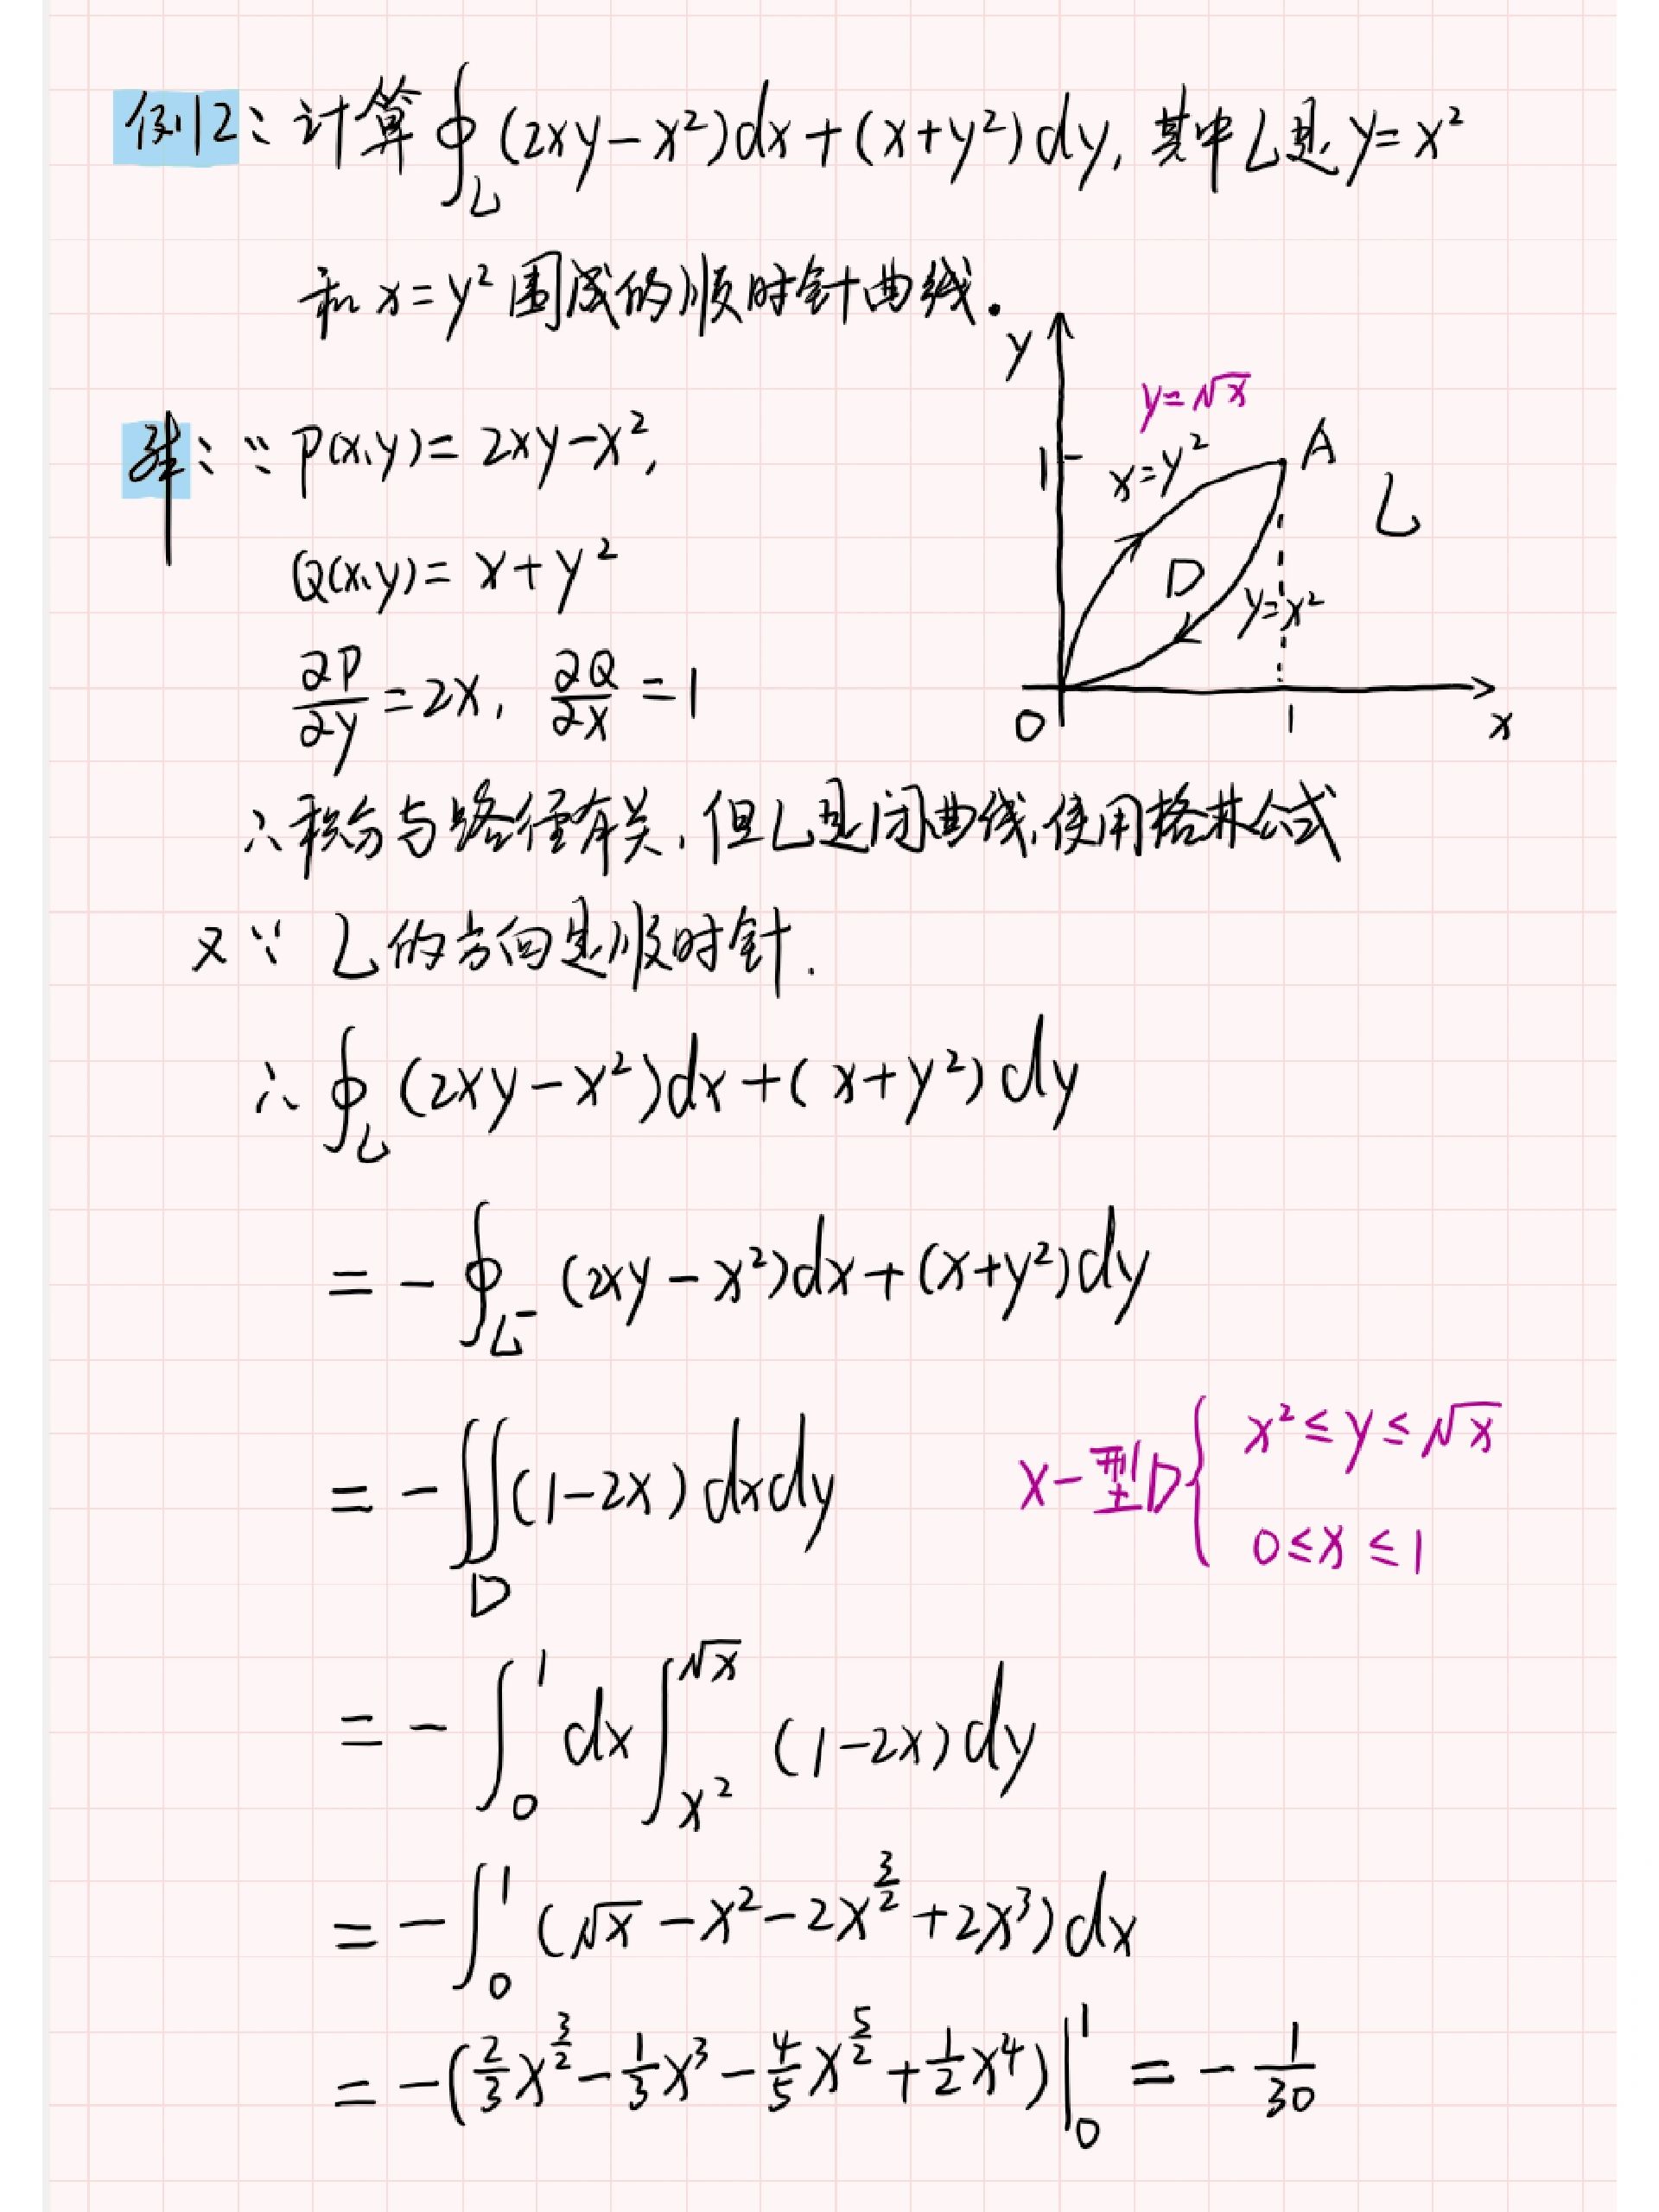 例12：计算∮_L (2xy-x²)dx+(x+y²)dy, 其中L是y=x²
和x=y²围成的顺时针曲线。
y
y=√x
1
x=y²
A
L
D
y=x²
O
1
x
解：∵ P(x,y)= 2xy-x²,
Q(x,y)= x+y²
∂P/∂y=2x, ∂Q/∂x=1
∴积分与路径有关,但L是闭曲线,使用格林公式
又∵ L的方向是顺时针.
∴ ∮_L (2xy-x²)dx+(x+y²)dy
= -∮_L⁻ (2xy-x²)dx+(x+y²)dy
= -∬_D (1-2x)dxdy
x-型D{ x²≤y≤√x
0≤x≤1
= -∫_0^1 dx∫_{x²}^{√x} (1-2x)dy
= -∫_0^1 (√x-x²-2x^{3/2}+2x³)dx
= -(2/3 x^{3/2}-1/3 x³-4/5 x^{5/2}+1/2 x⁴)|_0^1 = -1/30